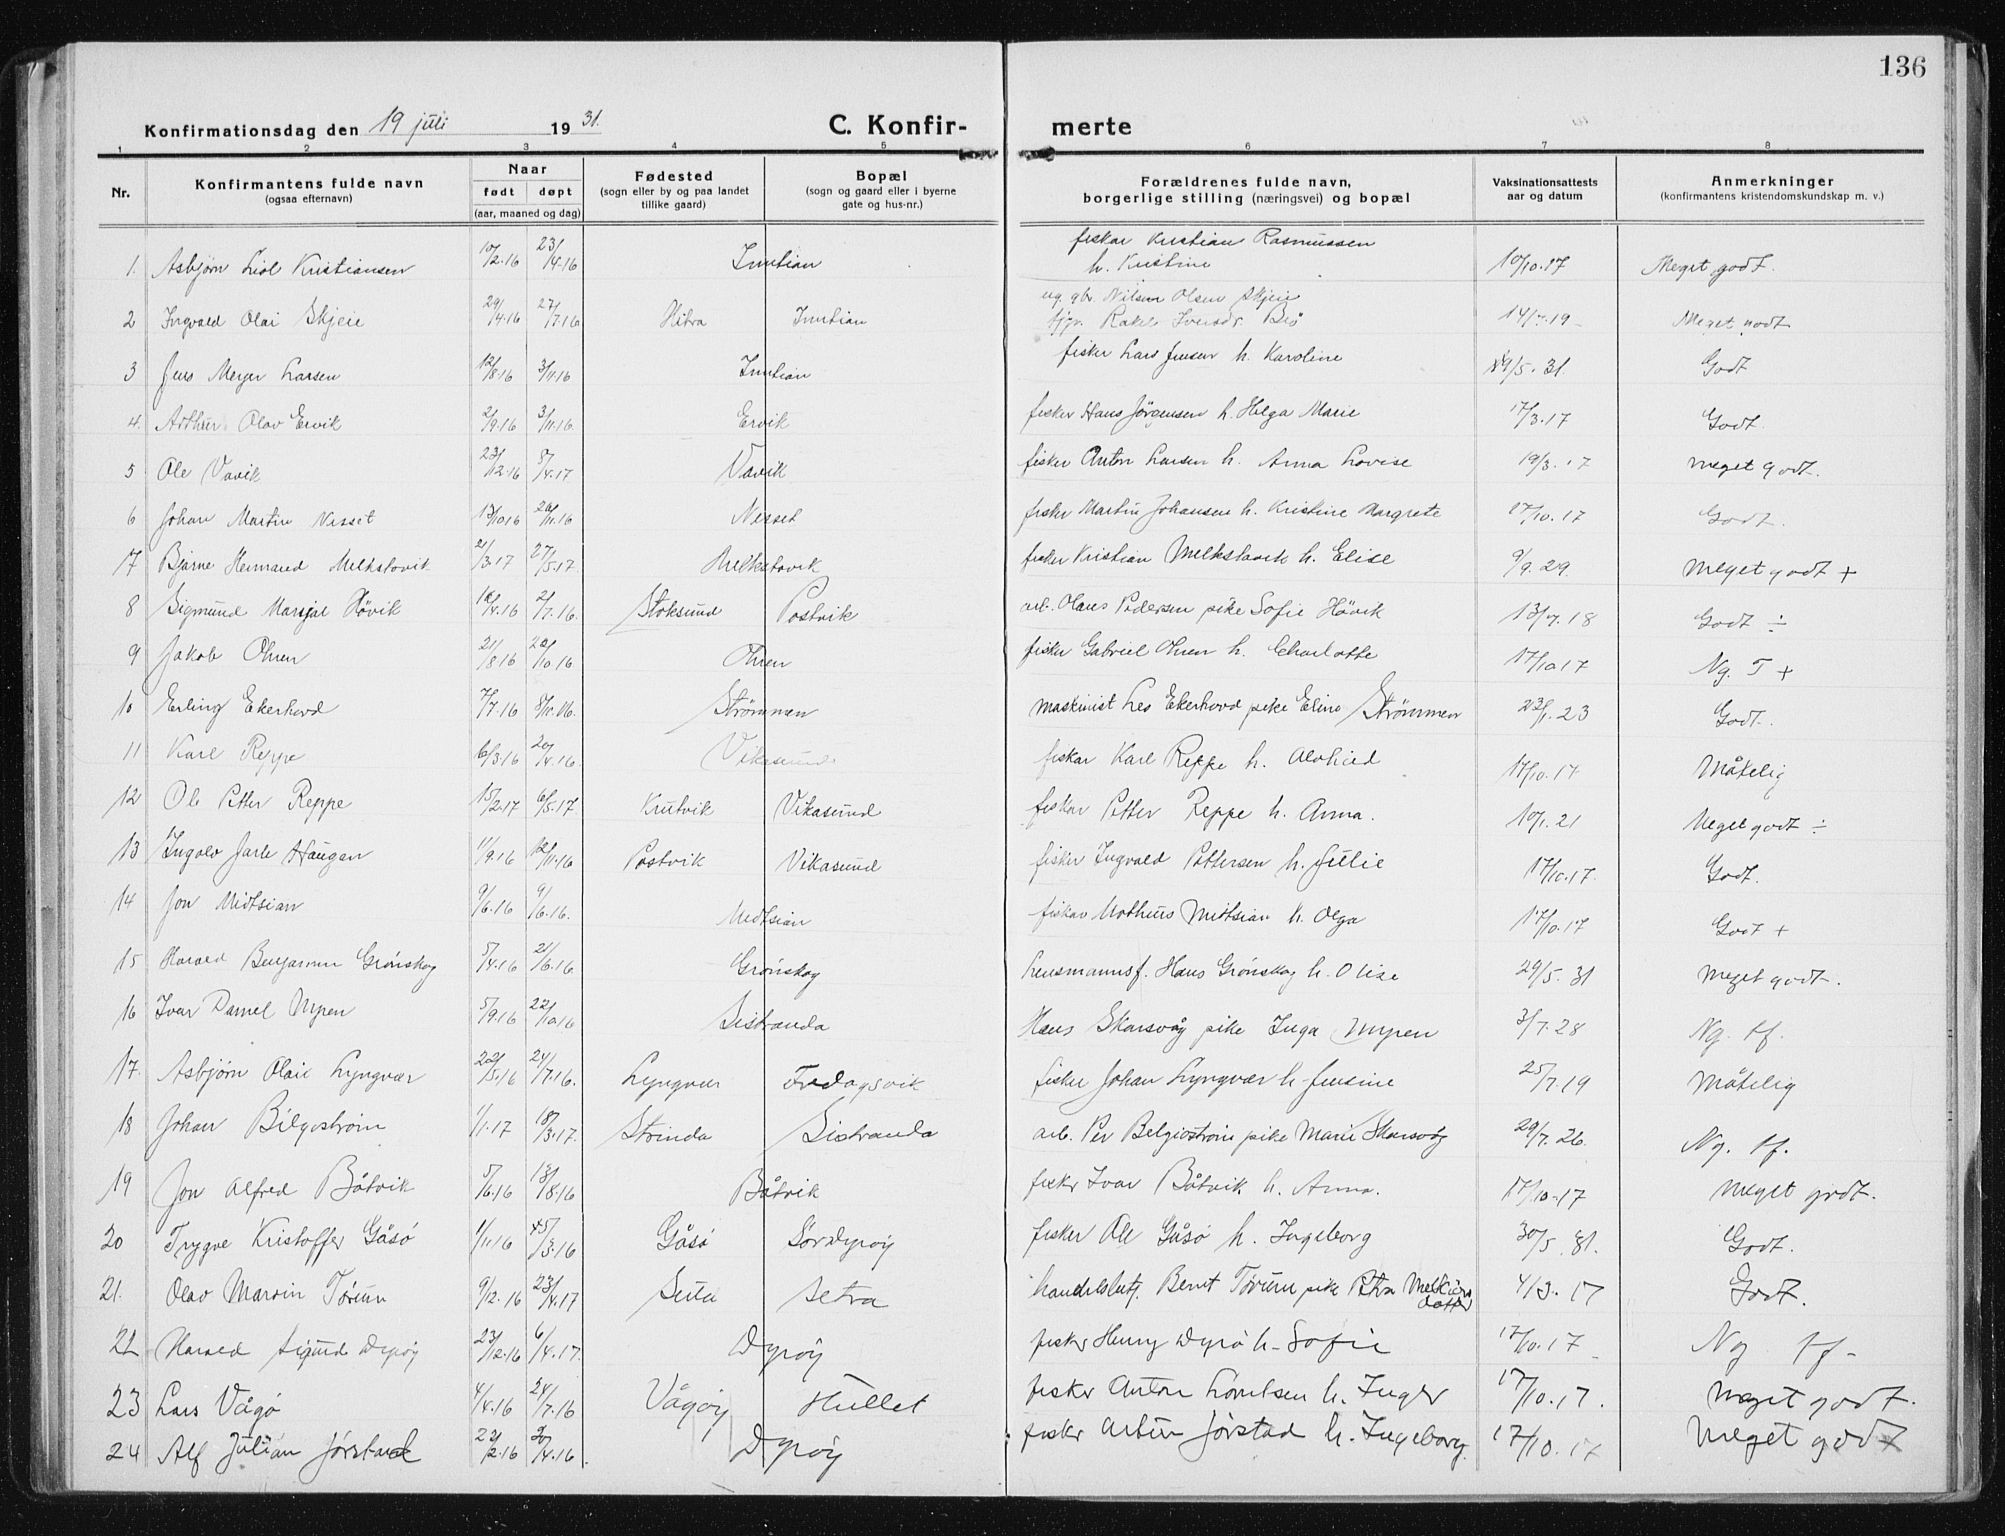 136
Konfirmationsdag den 19 juli 1931.
C. Konfir-merte
1 2 3 4 5 6 7 8
Nr. Konfirmantens fulde navn (ogsaa efternavn) Naar født døpt (aar, maaned og dag) Fødested (sogn eller by og paa landet tillike gaard) Bopæl (sogn og gaard eller i byerne gate og hus-nr.) Forældrenes fulde navn, borgerlige stilling (næringsvei) og bopæl Vaksinationsattests aar og datum Anmerkninger (konfirmantens kristendomskundskap m. v.)
fiskar Kristian Rasmussen
1. Asbjørn Liol Kristiansen 10/2.16 23/4.16 Inntian h. Kristine 10/10.17 Meget godt.
ug. gbr. Nilsen Olsen Skjeie
2 Ingvald Olai Skjeie 29/4.16 27/7.16 Hitra Inntian Rakel Iversdr. 14/7.19 Meget godt
3 Jens Meyer Larsen 12/8.16 3/11.16 Inntian fisker Lars Jensen h. Karoline 19/5.31 Godt
4. Arthur Olav Ervik 2/9.16 3/11.16 Ervik fisker Hans Jörgensen h. Helga Marie 17/3.17 Godt.
5 Ole Vavik 23/12.16 8/4.17 Vavik fisker Anton Larsen h. Anna Lovise 19/3.17 Meget godt.
6 Johan Martin Nesset 13/10 16 26/11.16 Nesset fisker Martin Johansen h. Kristine Margrete 17/10.17 Godt.
7 Bjarne Hermand Melkstavik 21/3.17 27/5.17 Melkstavik fisker Kristian Melkstavik h. Elise 9/9.29. Meget godt +
8 Sigmund Marsjal Hövik 2/7.16. Stoksund Postvik arb. Olaus Pedersen pike Sofie Hövik 13/7.18 Godt ÷
9 Jakob Ohren 21/8.16 20/10.16 Ohren fisker Gabriel Ohren h. Charlotte 17/10 17 Ng. T +
10 Erling Ekerhovd 7/7.16 8/10.16. Strömmen maskinist Leo Ekerhovd pike Eline Strömmen 23/1.23 Godt.
11 Karl Reppe 6/3.16 20/4.16. Vikasund fiskar Karl Reppe h. Alvhild 17/10.17 Måtelig
12 Ole Petter Reppe 15/2.17 6/5.17. Krutvik Vikasund fiskar Petter Reppe h. Anna. 10/1.21 Meget godt ÷
13 Ingolv Jarle Haugen 11/9.16 12/11.16 Postvik Vikasund fisker Ingvald Pettersen h. Julie 17/10.17. Godt.
14 Jon Midtsian 9/6.16 9/6.16. Midtsian fiskar Mathius Midtsian h. Olga 17/10.17 Godt +
15 Harald Benjamin Grönskag 5/4.16 21/6.16. Grönskag Lensmannsf. Hans Grönskag h. Olise 29/5.31 Meget godt.
16 Ivar Daniel Myren 5/9.16 22/10.16 Sistranda Hans Skarsvåg pike Inga Myren 3/7.28 Ng. tf.
17. Asbjørn Olai Lyngvær 22/5.16 24/7.16. Lyngvær Fredagsvik fisker Johan Lyngvær h. Jensine 25/7.19 Måtelig
18 Johan 1/1.17 18/3.17. Strinda Sistranda arb. Per pike Marie Skarsvåg 29/7.26. Ng. tf.
19 Jon Alfred Båtvik 5/6.16 13/8.16 Båtvik fisker Ivar Båtvik h. Anna. 17/10.17 Meget godt.
20 Trygve Kristoffer Gåsø 1/11.16 Gåsø Sördyrøy fisker Ole Gåsø h. Ingeborg 30/5.31. Godt.
21. Olav Marvin Tørum 9/12.16 23/4.17 Sula Setra handelsbetj. Bernt Tørum pike Petra Melkiørsdatter 4/3.17 Godt.
22 Harald Sigurd Dyrøy 23/12.16 6/4.17. Dyrøy fisker Henry Dyrø h. Sofie 17/10.17 Ng tf-
23 Lars Vågø 4/4.16 24/7.16 Vågøy Hullet fisker Anton Lorentsen h. Inger 17/10.17. Meget godt.
24 Alf Julian Jørstad 22/2.16 20/4.16. Dyrøy fisker Artur Jørstad h. Ingeborg. 17/10.17 Meget godt